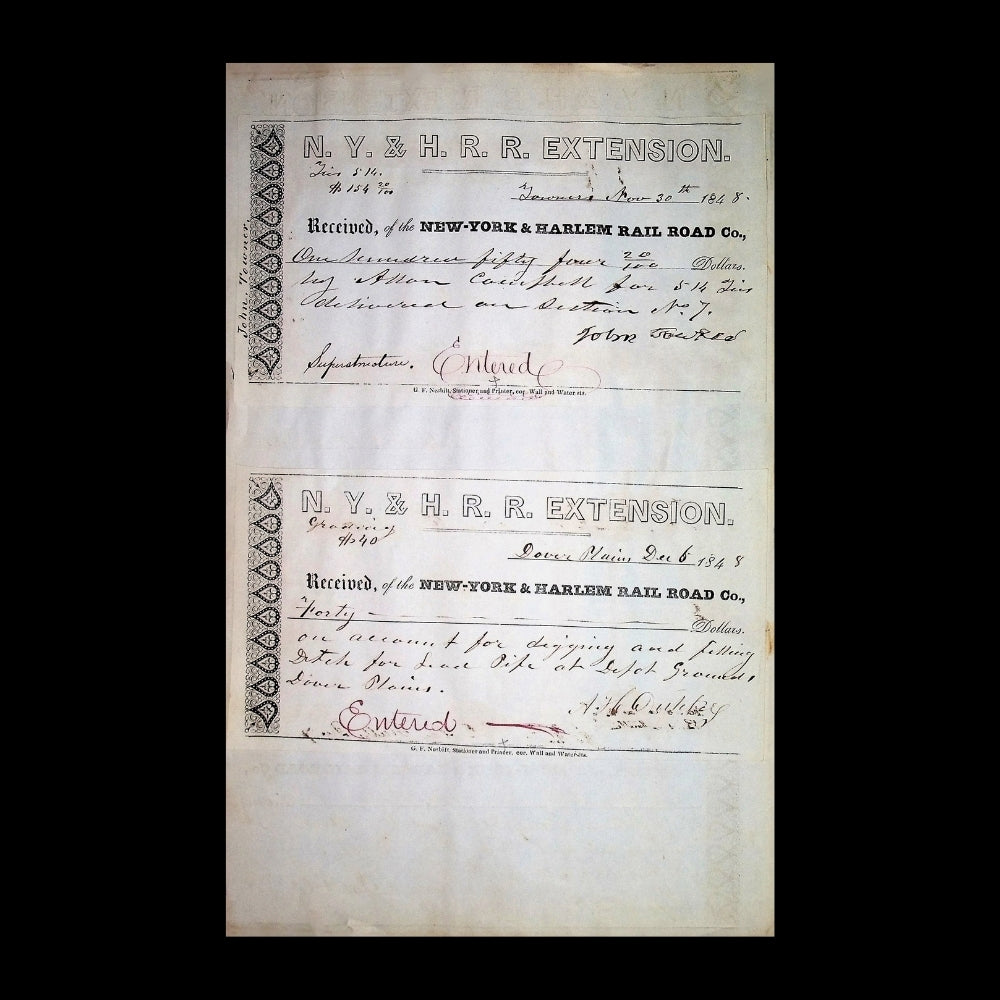 N. Y. & H. R. R. EXTENSION.
Ties 514.
$ 154 20/100
Towners Nov 30th 1848.
Received, of the NEW-YORK & HARLEM RAIL ROAD Co.,
One hundred fifty four 20/100 Dollars.
by Allan Campbell for 514 Ties
delivered on Section No 7.
John Towner
Superstructure. Entered
G. F. Nesbitt, Stationer and Printer, cor. Wall and Water sts.
John Towner.
N. Y. & H. R. R. EXTENSION.
Grading
$40
Dover Plains Dec 6 1848
Received, of the NEW-YORK & HARLEM RAIL ROAD Co.,
Forty Dollars.
on account for digging and filling
Ditch for Lead Pipe at Depot Grounds
Dover Plains.
Entered
G. F. Nesbitt, Stationer and Printer, cor. Wall and Water sts.